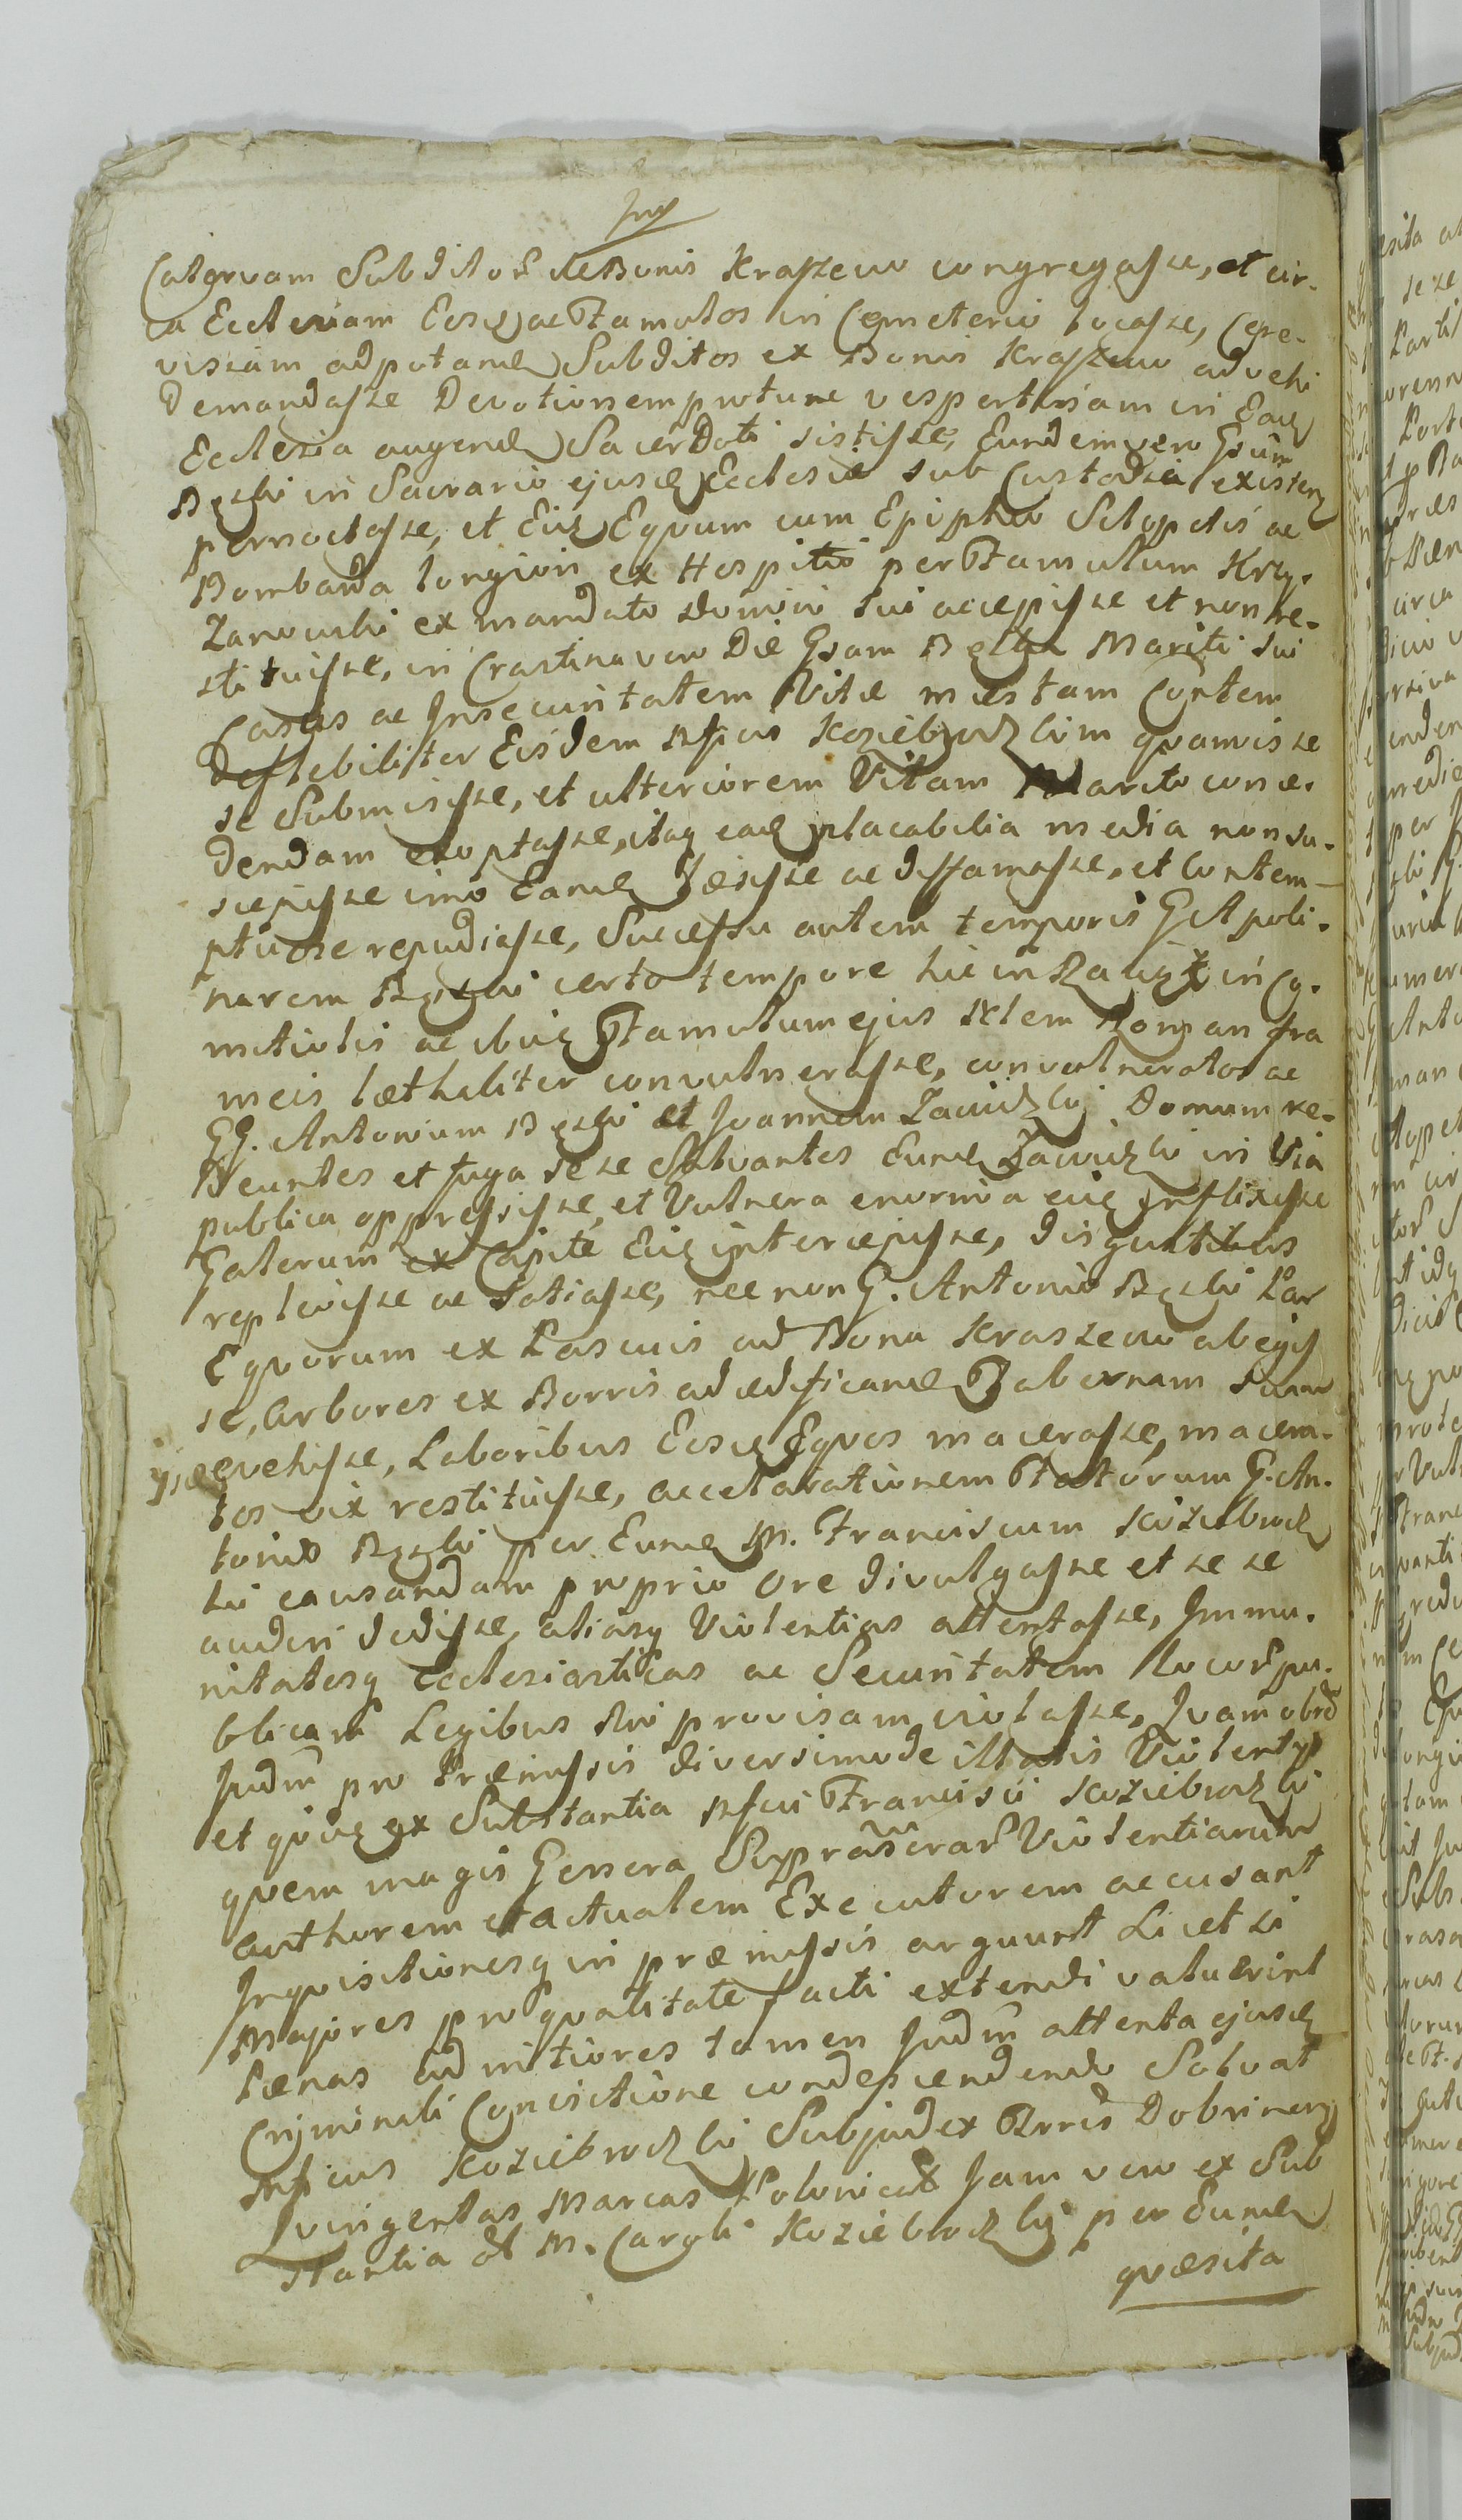 Catervam Subditoꝝ de Bonis Kraszewo congregasse, et cir-
ca Ecclesiam Eosq ac Famulos in Cemeterio locasse, Cere-
visiam ad potand Subditos ex Bonis Kraszewo advehi
demandasse Devotionem pro tunc vespertinam in Ead
Ecclesia augend Sacerdoti sistisse, Eundem vero Gsum
Bęski in Sacrario ejusd Ecclesiæ sub Custodia existen
pernoctasse, et Eiq Equum cum Epiphio Sclopetis ac
Bombarda longiori ex Hospitio per Famulum Krzy-
zanowski ex mandato Domini sui accepisse et non re-
stituisse, in Crastina vero Die Gsam Bęska Mariti sui
Casus ac Insecuritatem Vitæ mæstam Contem
deflebiliter Eidem Mfico Koziebrodzki quamvis se
se Submisisse, et ulteriorem Vitam Marito conce-
dendam exoptasse, itaq ead placabilia media non su-
scepisse imo Eand læsisse ac diffamasse, et Contem-
ptuose repudiasse, Successu autem temporis G Apoli-
narem Bęski certo tempore hic in Raciąż in Co-
mitiolis ac ibiq Famulum ejus Sclem Roman fra
meis læthaliter convulnerasse, convulneratos ac
GG. Antonium Bęski et Joannem Zawidzki Domum re-
deuntes et fuga sese Salvantes Eund Zawidzki in Via
publica oppressisse, et Vulnera enormia eiq inflixisse
Galerum ex Capite Eiq intercepisse, disgustibus
replevisse ac satiasse, nec non G. Antonio Bęski Par
Equorum ex Pascuis ad Bona Kraszewo abegis
se, Arbores ex Borris ad ædificand Tabernam suam
evehisse, Laboribus Eosq Equos macerasse, macera-
tos vix restituisse, accelerationem Fatorum G. An-
tonio Bęski per Eund M. Franciscum Koziebrodz
ki causandam proprio Ore divulgasse et se se
audiri dedisse, aliasq Violentias attentasse, Immu-
nitatesq Ecclesiasticas ac Securitatem Locorꝝ pu-
blicam Legibus Rni provisam violasse, Quam obrem
Judm pro Præmissis diversimode illatis Violentys
et quiq ex Substantia Mfici Francisci Koziebrodzki
quem magis Genera Suprascrar Violentiarum
authorem et actualem Executorem accusant
Inquisitionesq in præmissis arguunt Licet si
Majores pro qualitate facti extendi valuerint
Pænas ad mitiores tamen Judm attenta ejusd
Criminali Conisitione condescendendo Solvat
Mficus Koziebrodzki Subjudex Trris Dobrinen
Quingentas Marcas Polonical Jam vero ex Sub
stantia ol M. Caroli Koziebrodzki per Eund
quæsita